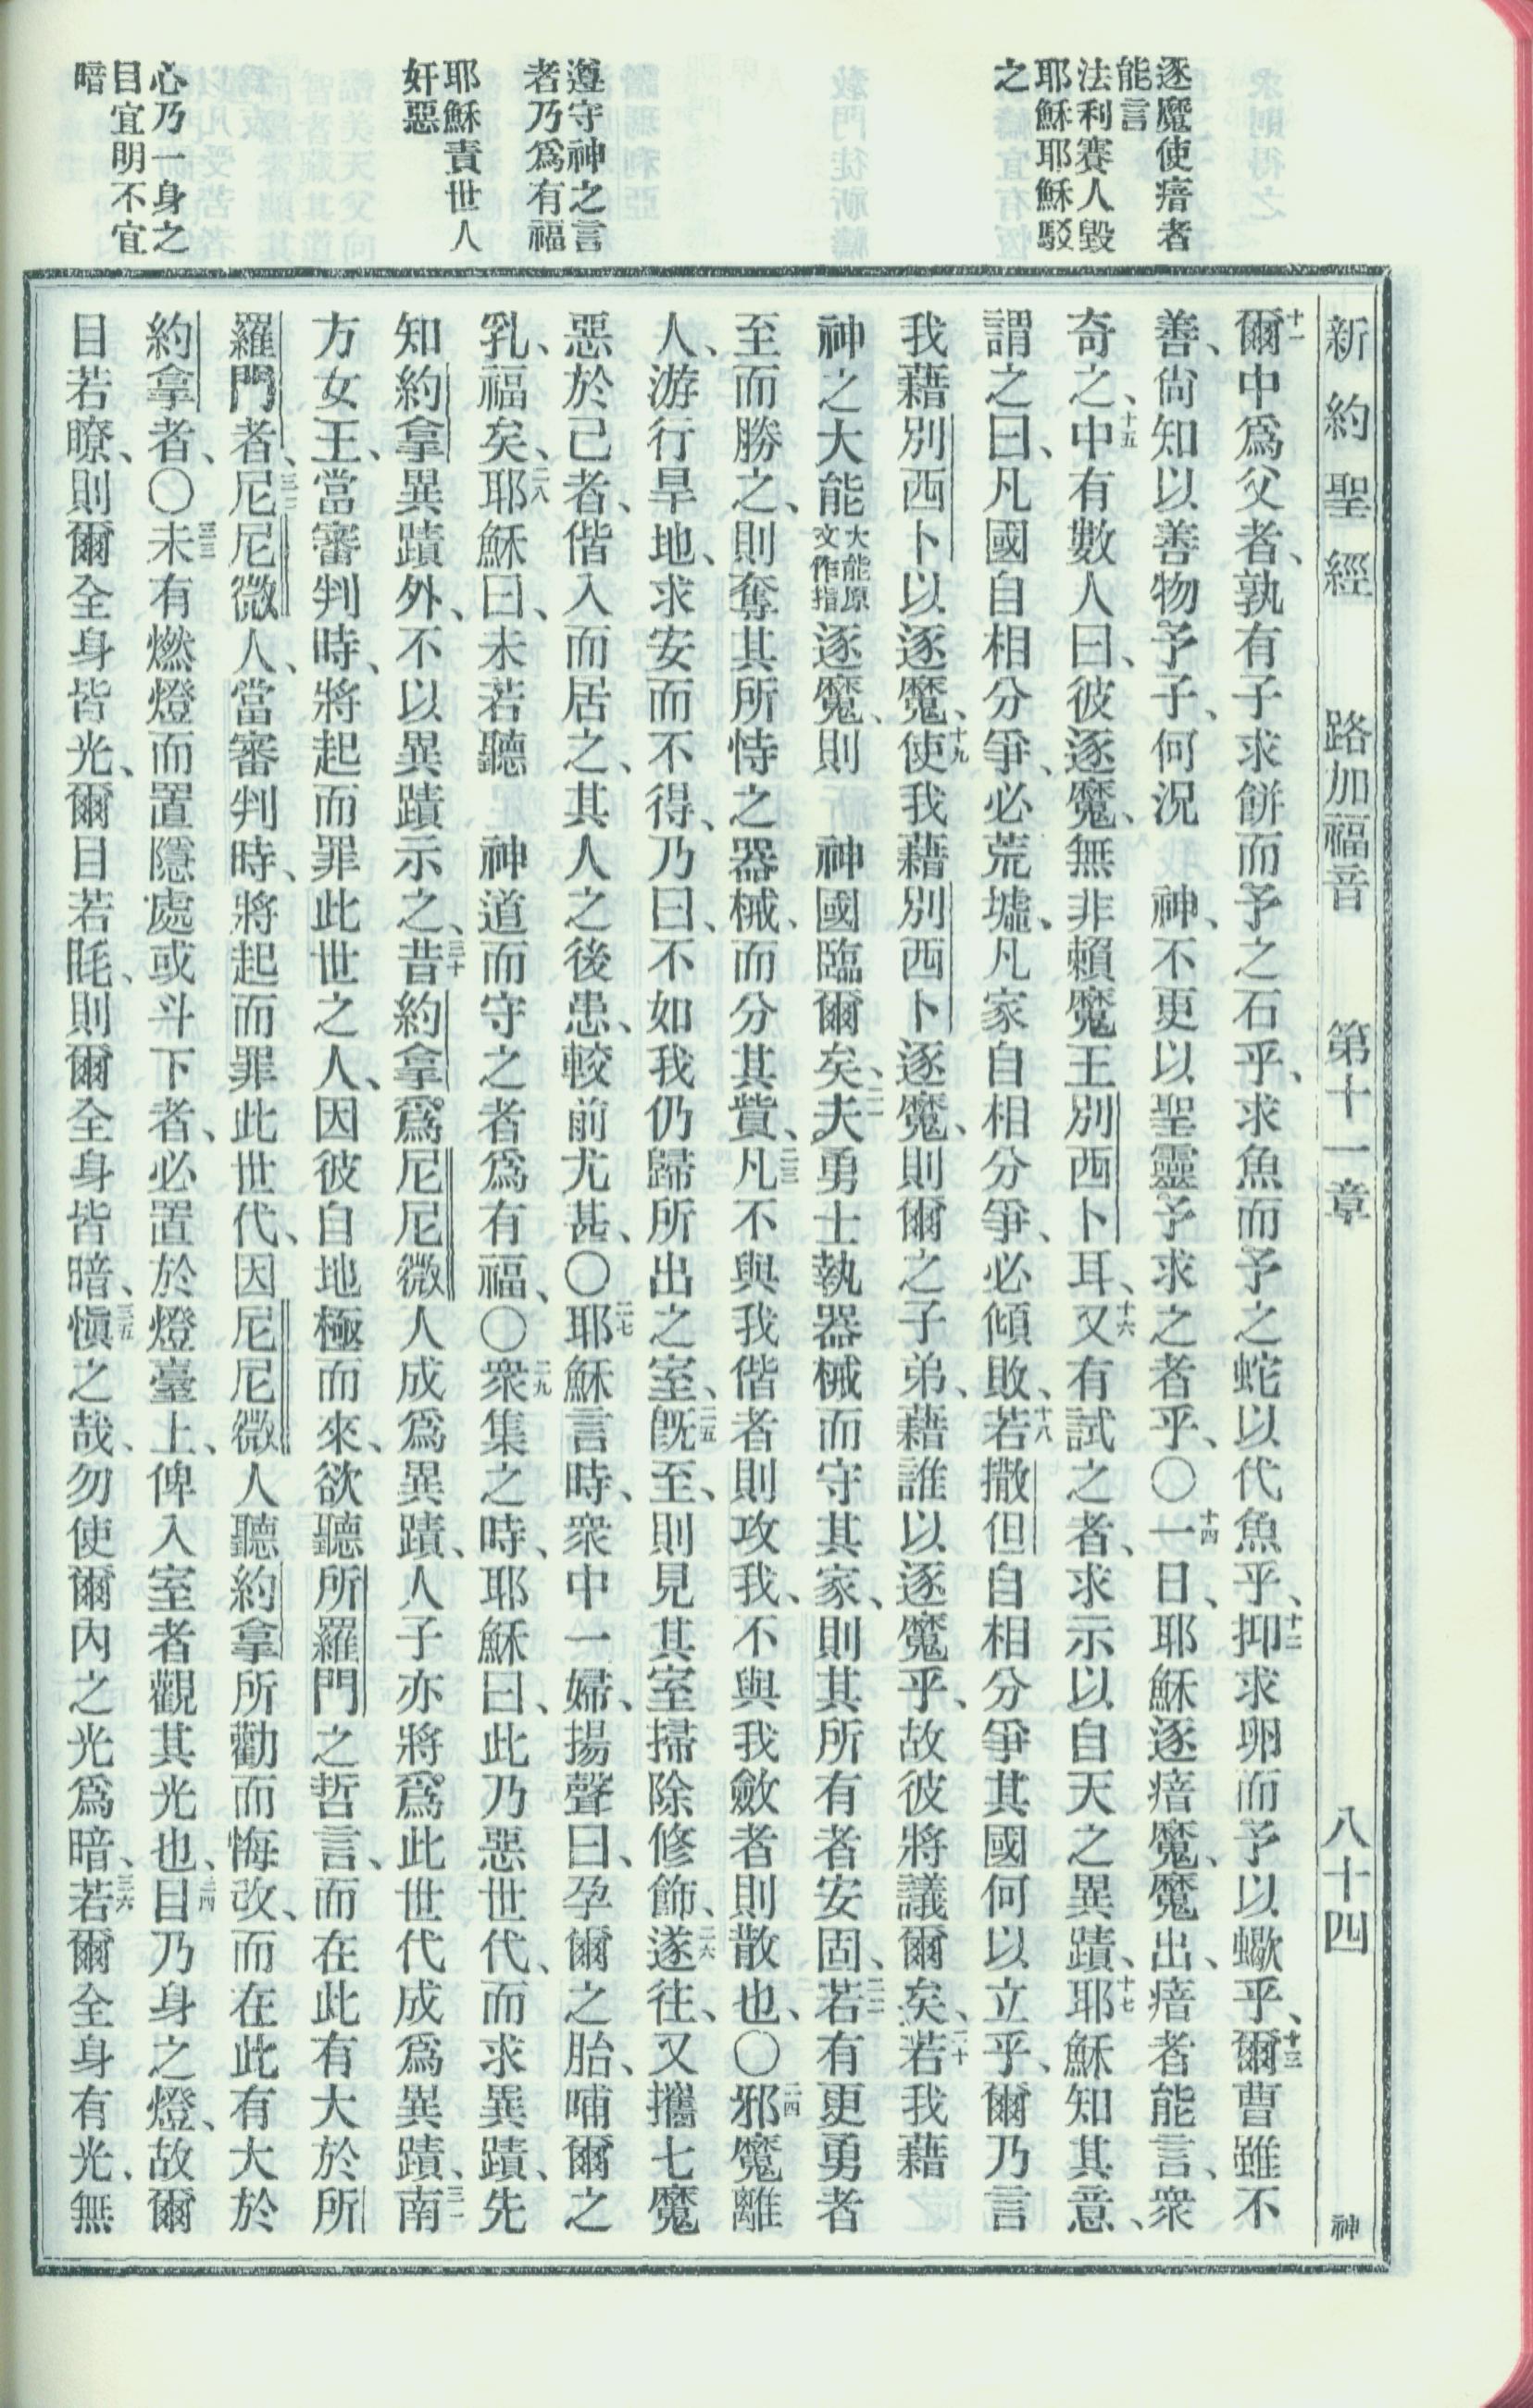 逐魔使瘖者
能言
法利賽人毀
耶穌耶穌駁
之
遵守神之言
者乃爲有福
耶穌責世人
奸惡
心乃一身之
目宜明不宜
暗
新約聖經 路加福音 第十一章 八十四 神
十一爾中爲父者、孰有子求餅而予之石乎、求魚而予之蛇以代魚乎、十二抑求卵而予以蠍乎、十三爾曹雖不
善、尙知以善物予子、何況 神、不更以聖靈予求之者乎、〇十四一日、耶穌逐瘖魔、魔出、瘖者能言、衆
奇之、十五中有數人曰、彼逐魔、無非賴魔王別西卜耳、十六又有試之者、求示以自天之異蹟、十七耶穌知其意、
謂之曰、凡國自相分爭、必荒墟、凡家自相分爭、必傾敗、十八若撒但自相分爭其國何以立乎、爾乃言
我藉別西卜以逐魔、十九使我藉別西卜逐魔、則爾之子弟、藉誰以逐魔乎、故彼將議爾矣、二十若我藉
神之大能大能原文作指逐魔、則 神國臨爾矣、二一夫勇士執器械而守其家、則其所有者安固、二二若有更勇者
至而勝之、則奪其所恃之器械、而分其貲、二三凡不與我偕者則攻我、不與我斂者則散也、〇二四邪魔離
人、游行旱地、求安而不得、乃曰、不如我仍歸所出之室、二五旣至、則見其室掃除修飾、二六遂往、又攜七魔
惡於己者、偕入而居之、其人之後患、較前尤甚、〇二七耶穌言時、衆中一婦、揚聲曰、孕爾之胎、哺爾之
乳、福矣、二八耶穌曰、未若聽 神道而守之者爲有福、〇二九衆集之時、耶穌曰、此乃惡世代、而求異蹟、先
知約拿異蹟外、不以異蹟示之、三十昔約拿爲尼尼微人成爲異蹟、人子亦將爲此世代成爲異蹟、三一南
方女王、當審判時、將起而罪此世之人、因彼自地極而來、欲聽所羅門之哲言、而在此有大於所
羅門者、三二尼尼微人、當審判時、將起而罪此世代、因尼尼微人聽約拿所勸而悔改、而在此有大於
約拿者、〇三三未有燃燈而置隱處或斗下者、必置於燈臺上、俾入室者觀其光也、三四目乃身之燈、故爾
目若瞭、則爾全身皆光、爾目若眊、則爾全身皆暗、三五愼之哉、勿使爾內之光爲暗、三六若爾全身有光、無